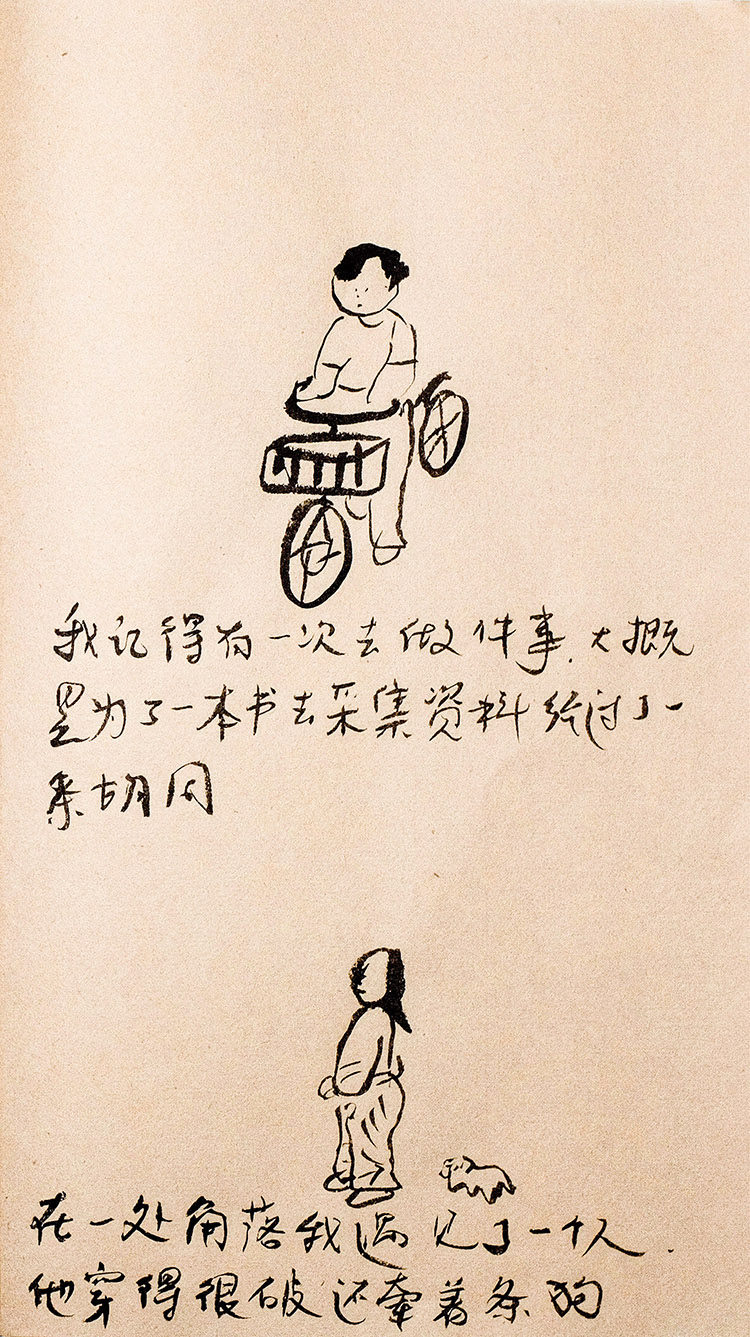 我记得有一次去做件事.大概
是为了一本书去采集资料经过了一
条胡同
在一处角落我遇见了一个人.
他穿得很破还牵着条狗